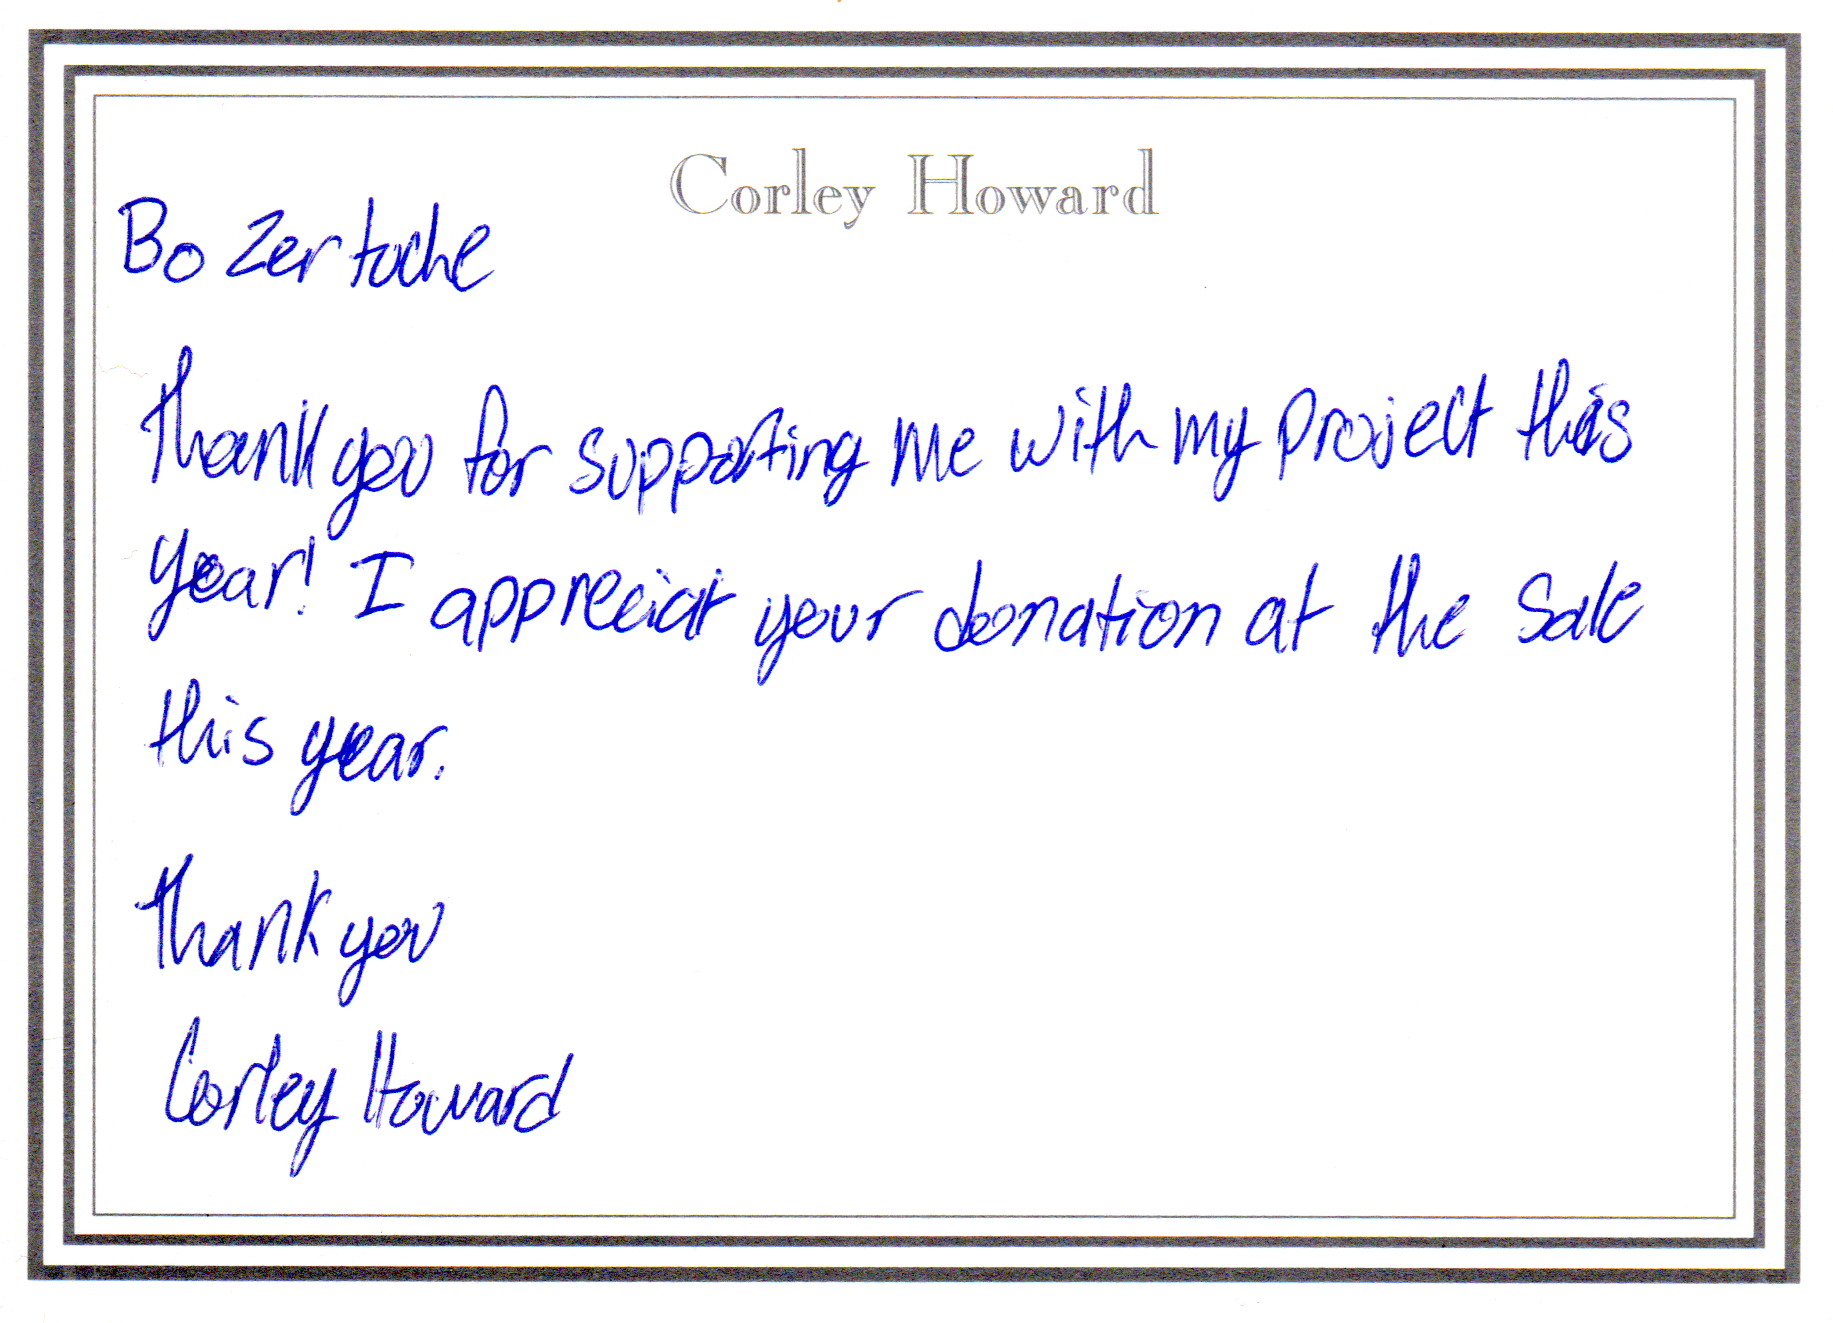 Corley Howard
Bo Zertoche
Thank you for supporting me with my project this
year! I appreciat your donation at the sale
this year.
Thank you
Corley Howard